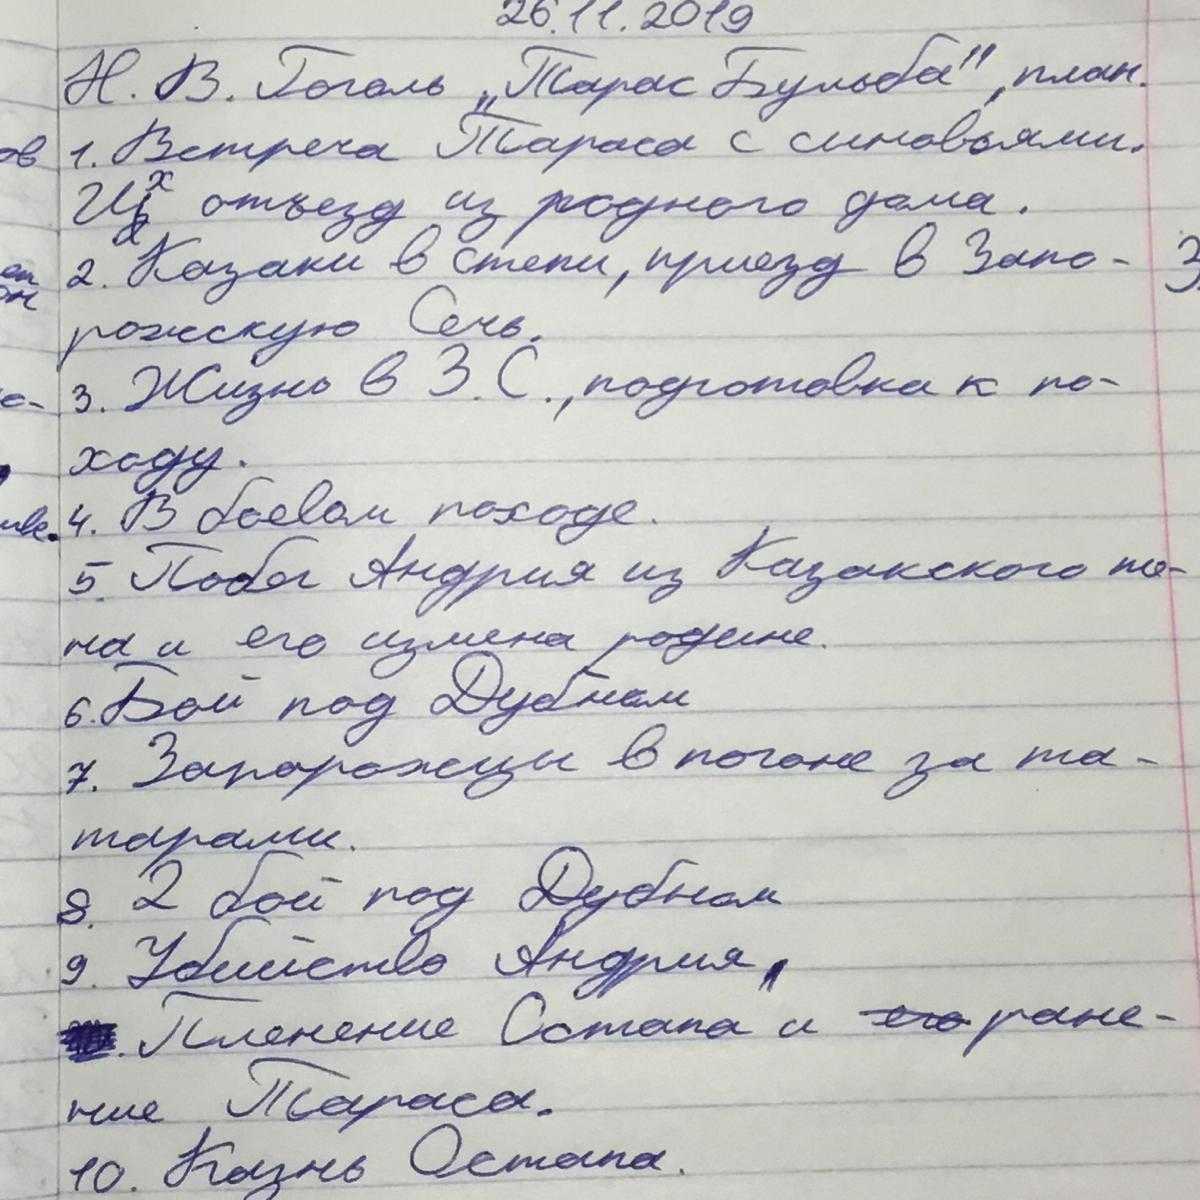 26.11.2019
Н. В. Гоголь „Тарас Бульба", план.
1. Встреча Тараса с синовьями.
Их отъезд из родного дома.
2. Казаки в степи, приезд в Запо-
рожскую Сечь.
3. Жизнь в З.С., подготовка к по-
ходу.
4. В боевом походе.
5. Побег Андрия из Казакского
и его измена родине.
6. Бой под Дубном
7. Запорожцы в погоне за та-
тарами.
8. 2 бой под Дубном
9. Убийство Андрия,
Пленение Остапа и его ране-
ние Тараса.
10. Казнь Остапа.